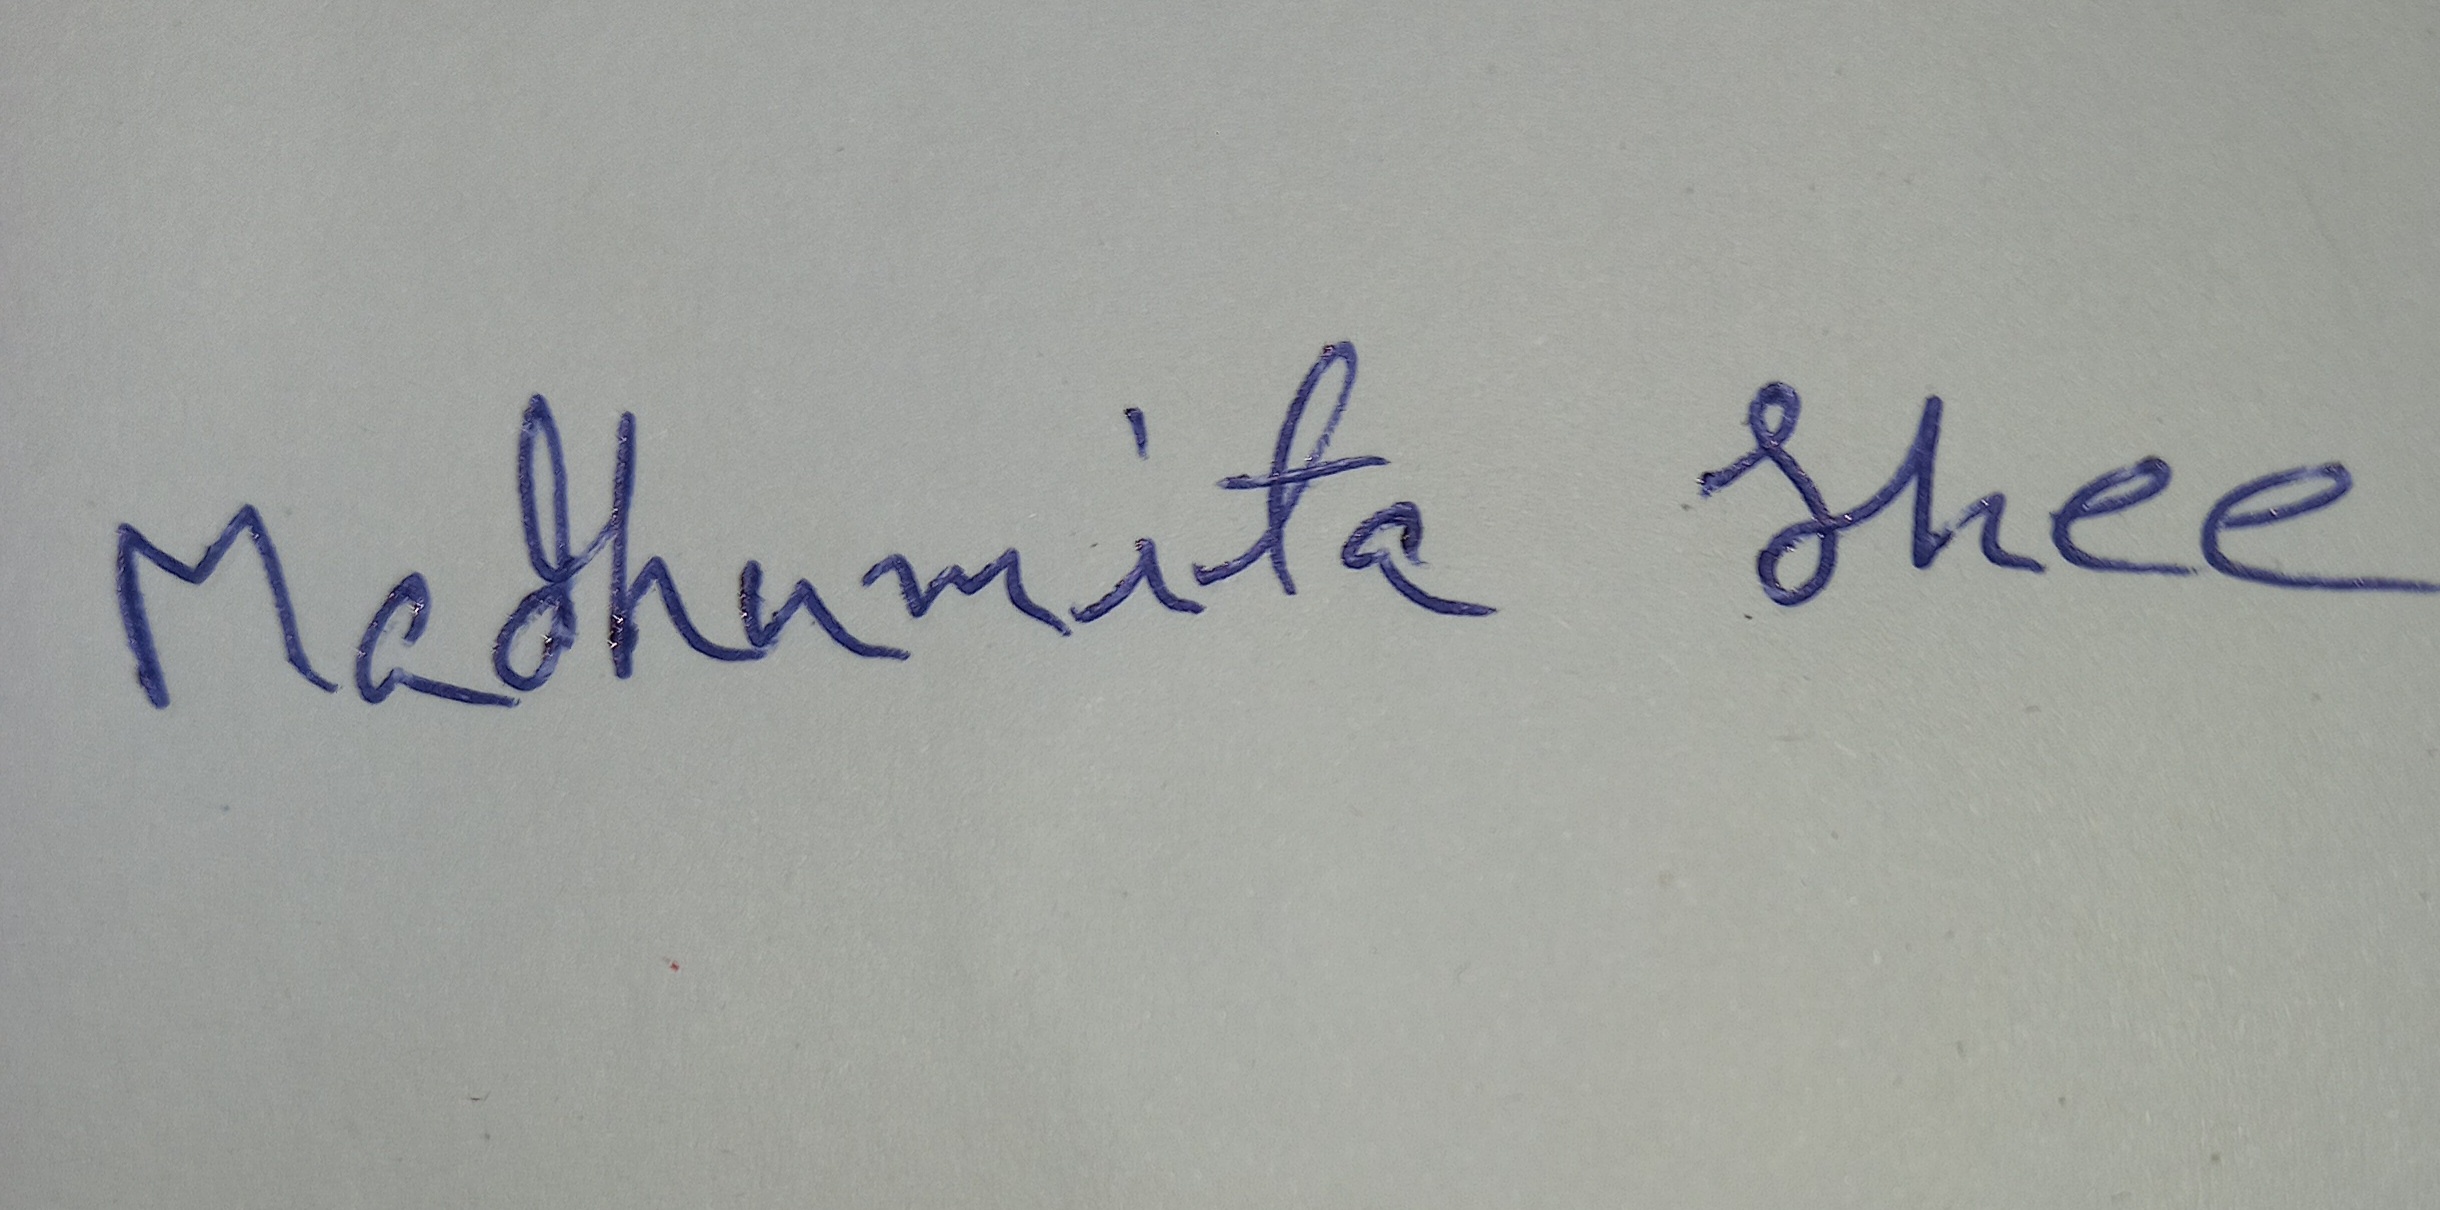 Madhumita Shee